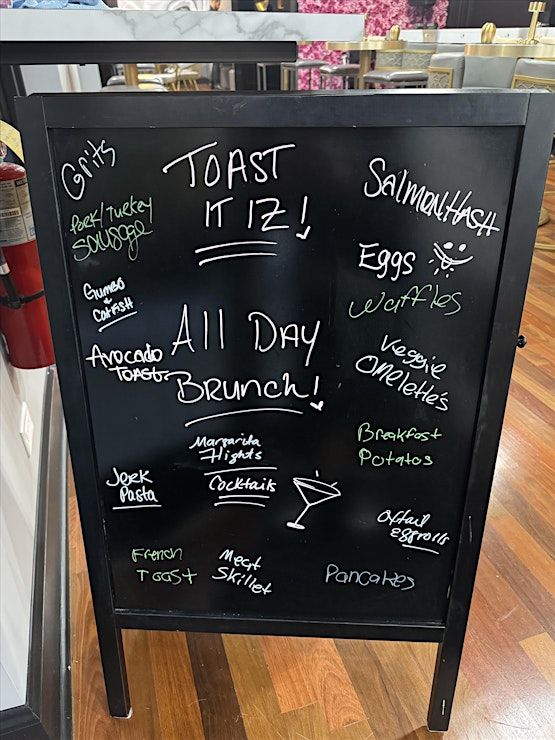 Grits
Pork/Turkey
Sausage
Gumbo
+
Catfish
Avocado
TOAST
Jerk
Pasta
French
TOAST
TOAST
IT IZ!
All DAY
BRUNCH!
Margarita
Flights
Cocktails
Meat
Skillet
SalmonHASH
Eggs
Waffles
Veggie
Omelette's
Breakfast
Potatos
Oxtail
eggrolls
Pancakes